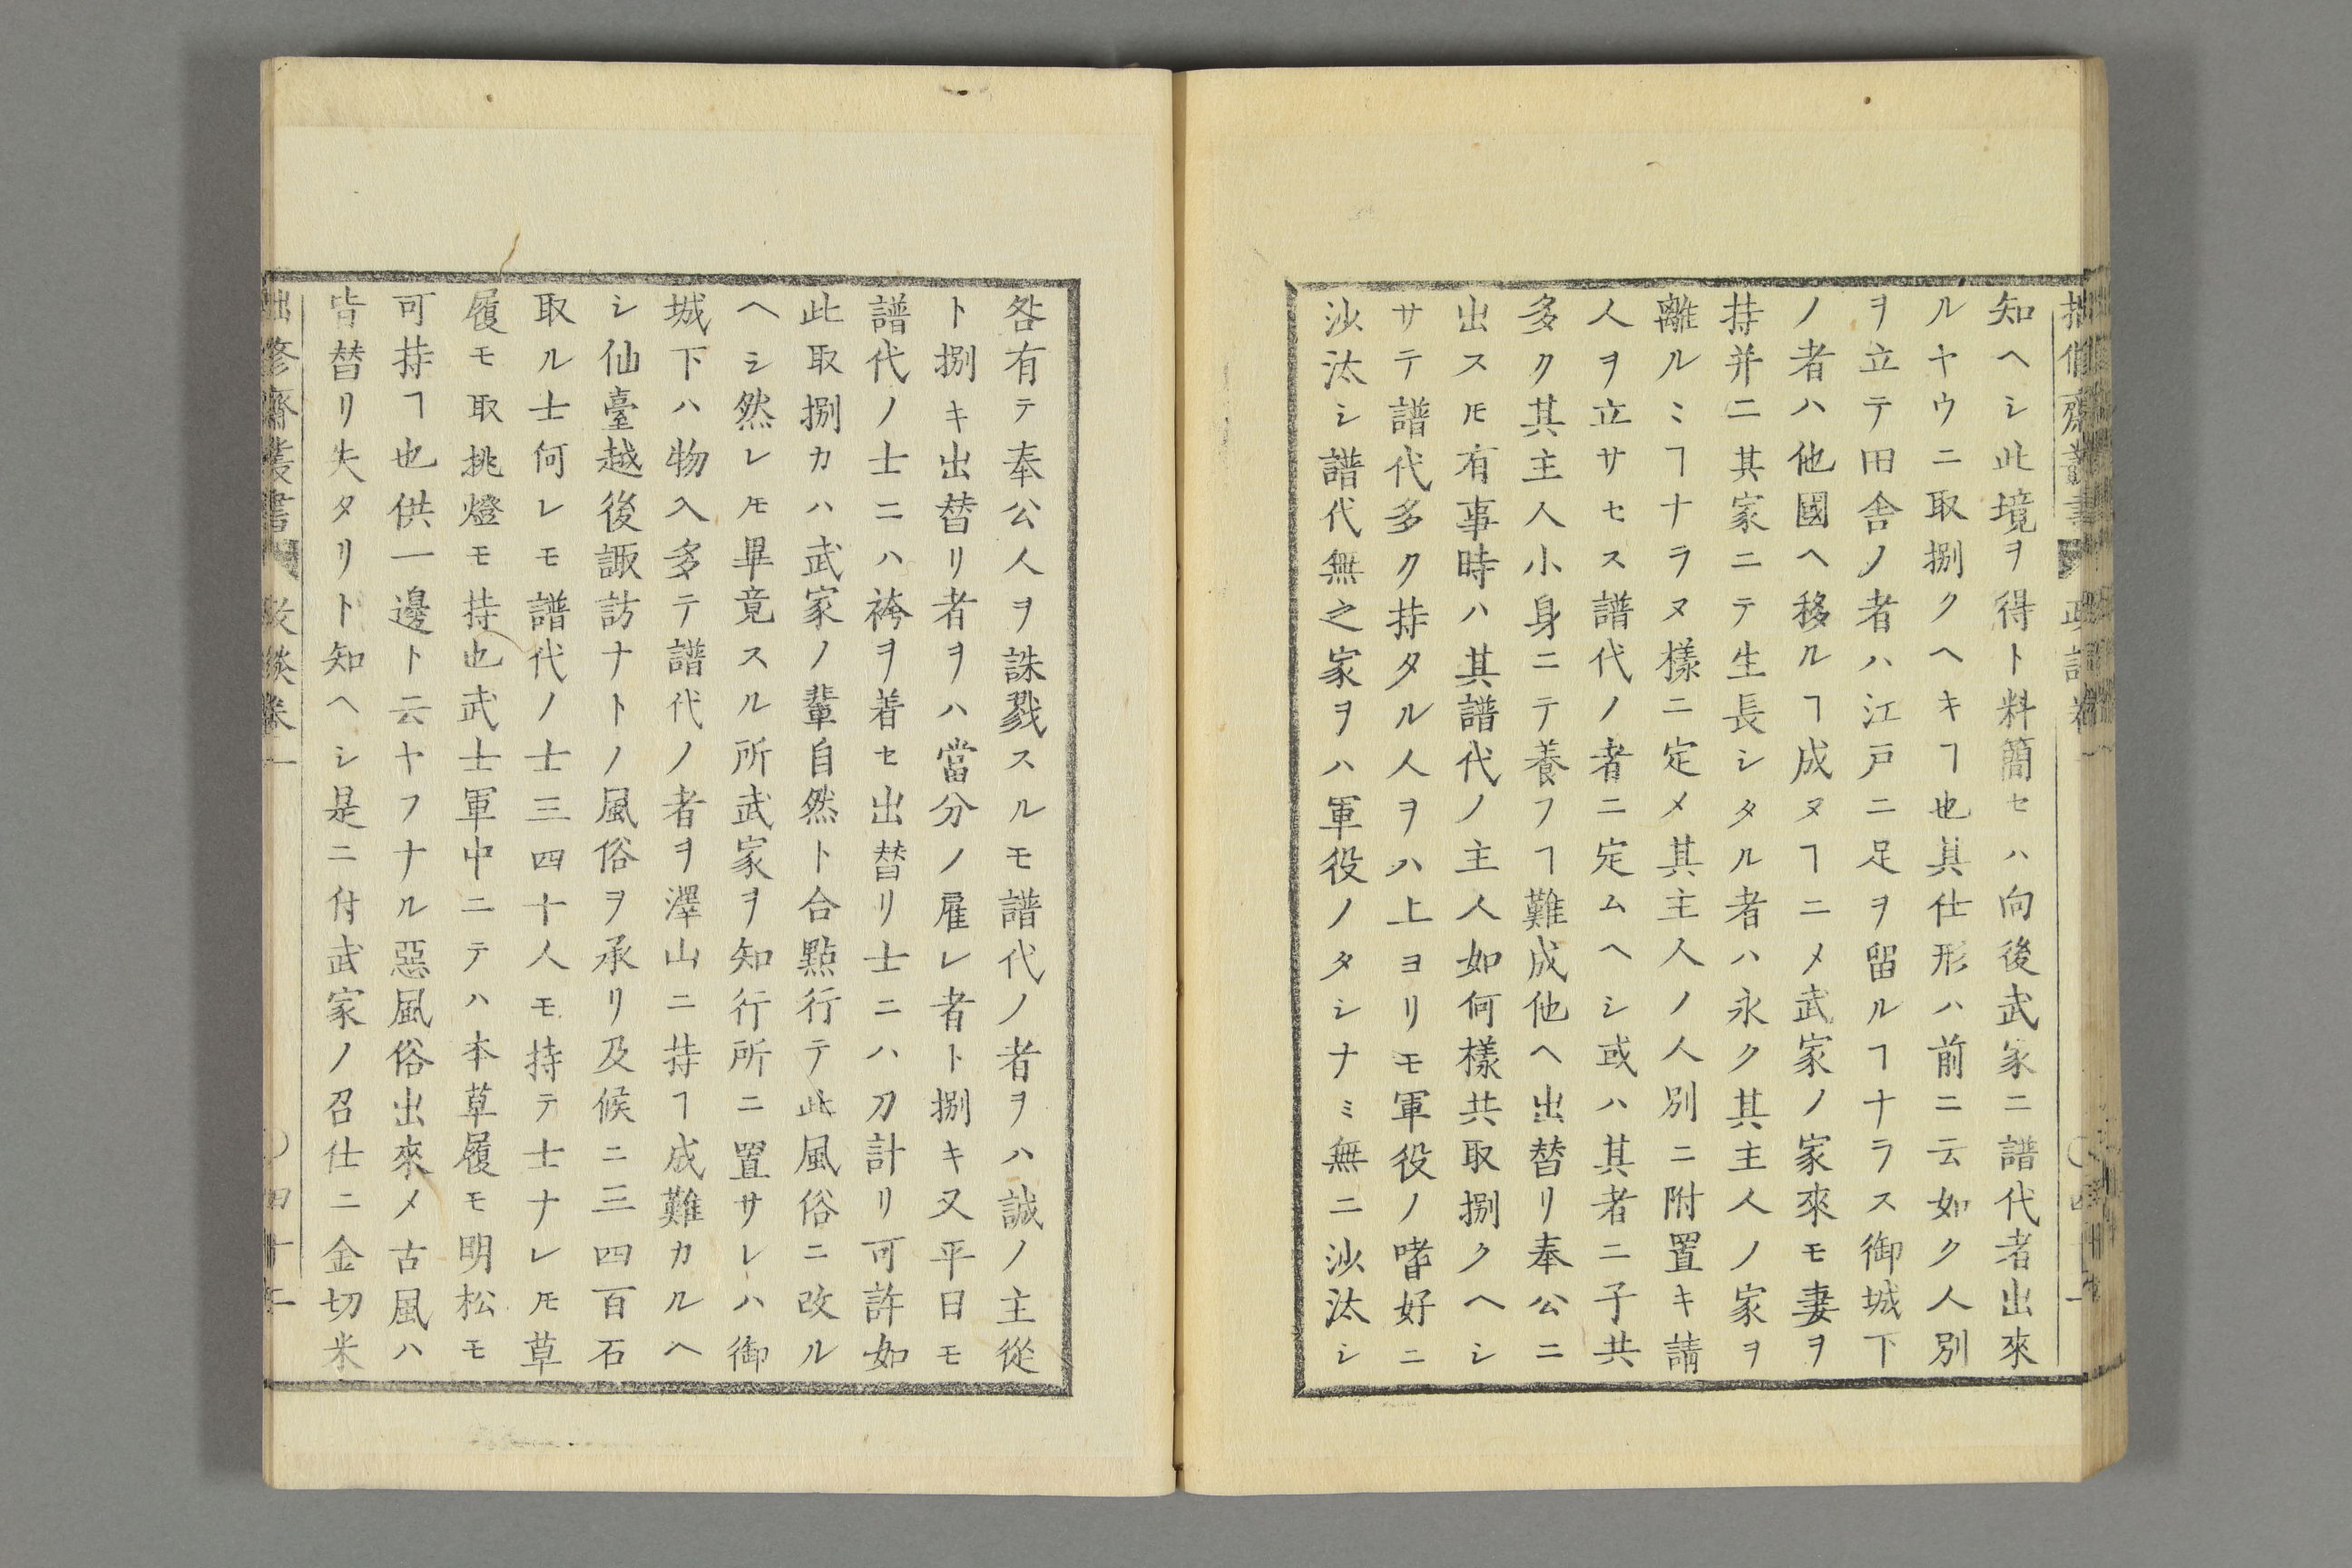 知ヘシ此境ヲ得ト料簡セハ向後武家ニ譜代者出來
ルヤウニ取捌クヘキヿ也其仕形ハ前ニ云如ク人別
ヲ立テ田舎ノ者ハ江戸ニ足ヲ留ルヿナラス御城下
ノ者ハ他國ヘ移ルヿ成ヌヿニメ武家ノ家來モ妻ヲ
持并ニ其家ニテ生長シタル者ハ永ク其主人ノ家ヲ
離ルミヿナラヌ樣ニ定メ其主人ノ人別ニ附置キ請
人ヲ立サセス譜代ノ者ニ定ムヘシ或ハ其者ニ子共
多ク其主人小身ニテ養フヿ難成他ヘ出替リ奉公ニ
出スモ有事時ハ其譜代ノ主人如何樣共取捌クヘシ
サテ譜代多ク持タル人ヲハ上ヨリモ軍役ノ嗜好ニ
沙汰シ譜代無之家ヲハ軍役ノタシナミ無ニ沙汰シ
咎有テ奉公人ヲ誅戮スルモ譜代ノ者ヲハ誠ノ主從
ト捌キ出替リ者ヲハ當分ノ雇レ者ト捌キ又平日モ
譜代ノ士ニハ袴ヲ着セ出替リ士ニハ刀計リ可許如
此取捌カハ武家ノ輩自然ト合點行テ此風俗ニ改ル
ヘシ然レ𪜈畢竟スル所武家ヲ知行所ニ置サレハ御
城下ハ物入多テ譜代ノ者ヲ澤山ニ持ヿ成難カルヘ
シ仙臺越後諏訪ナトノ風俗ヲ承リ及候ニ三四百石
取ル士何レモ譜代ノ士三四十人モ持テ士ナレ𪜈草
履モ取挑燈モ持也武士軍中ニテハ本草履モ明松モ
可持ヿ也供一邊ト云ヤフナル惡風俗出來メ古風ハ
皆替リ失タリト知ヘシ是ニ付武家ノ召仕ニ金切米
拙修齋叢書 政談卷一 〇四十二